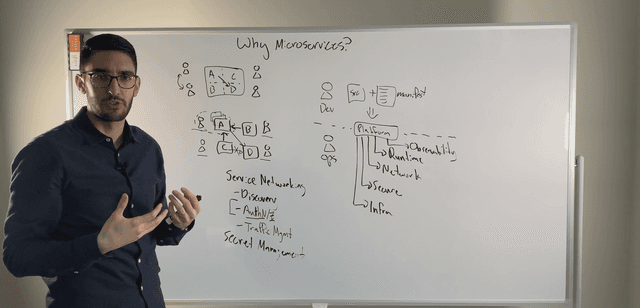 Why Microservices?
A C
B D
A
B
C
D
Service Networking
- Discovery
- AuthN/Z
- Traffic Mgmt
Secret Management
Dev
src + manifest
Platform
Ops
Observability
Runtime
Network
Secure
Infra